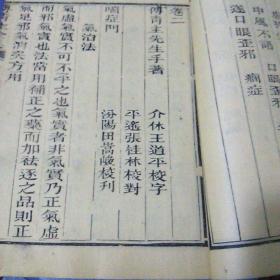 中風不語
逐口眼歪邪
卷二
傅青主先生手著 介休王道平校字
平遙張桂林校對
汾陽田
校刊
喘症門
氣治法
氣虛氣實不可不平之也氣實者非氣實乃正氣虛
邪氣實也法當用補正之藥而加祛逐之品則正
氣足邪氣消矣方用